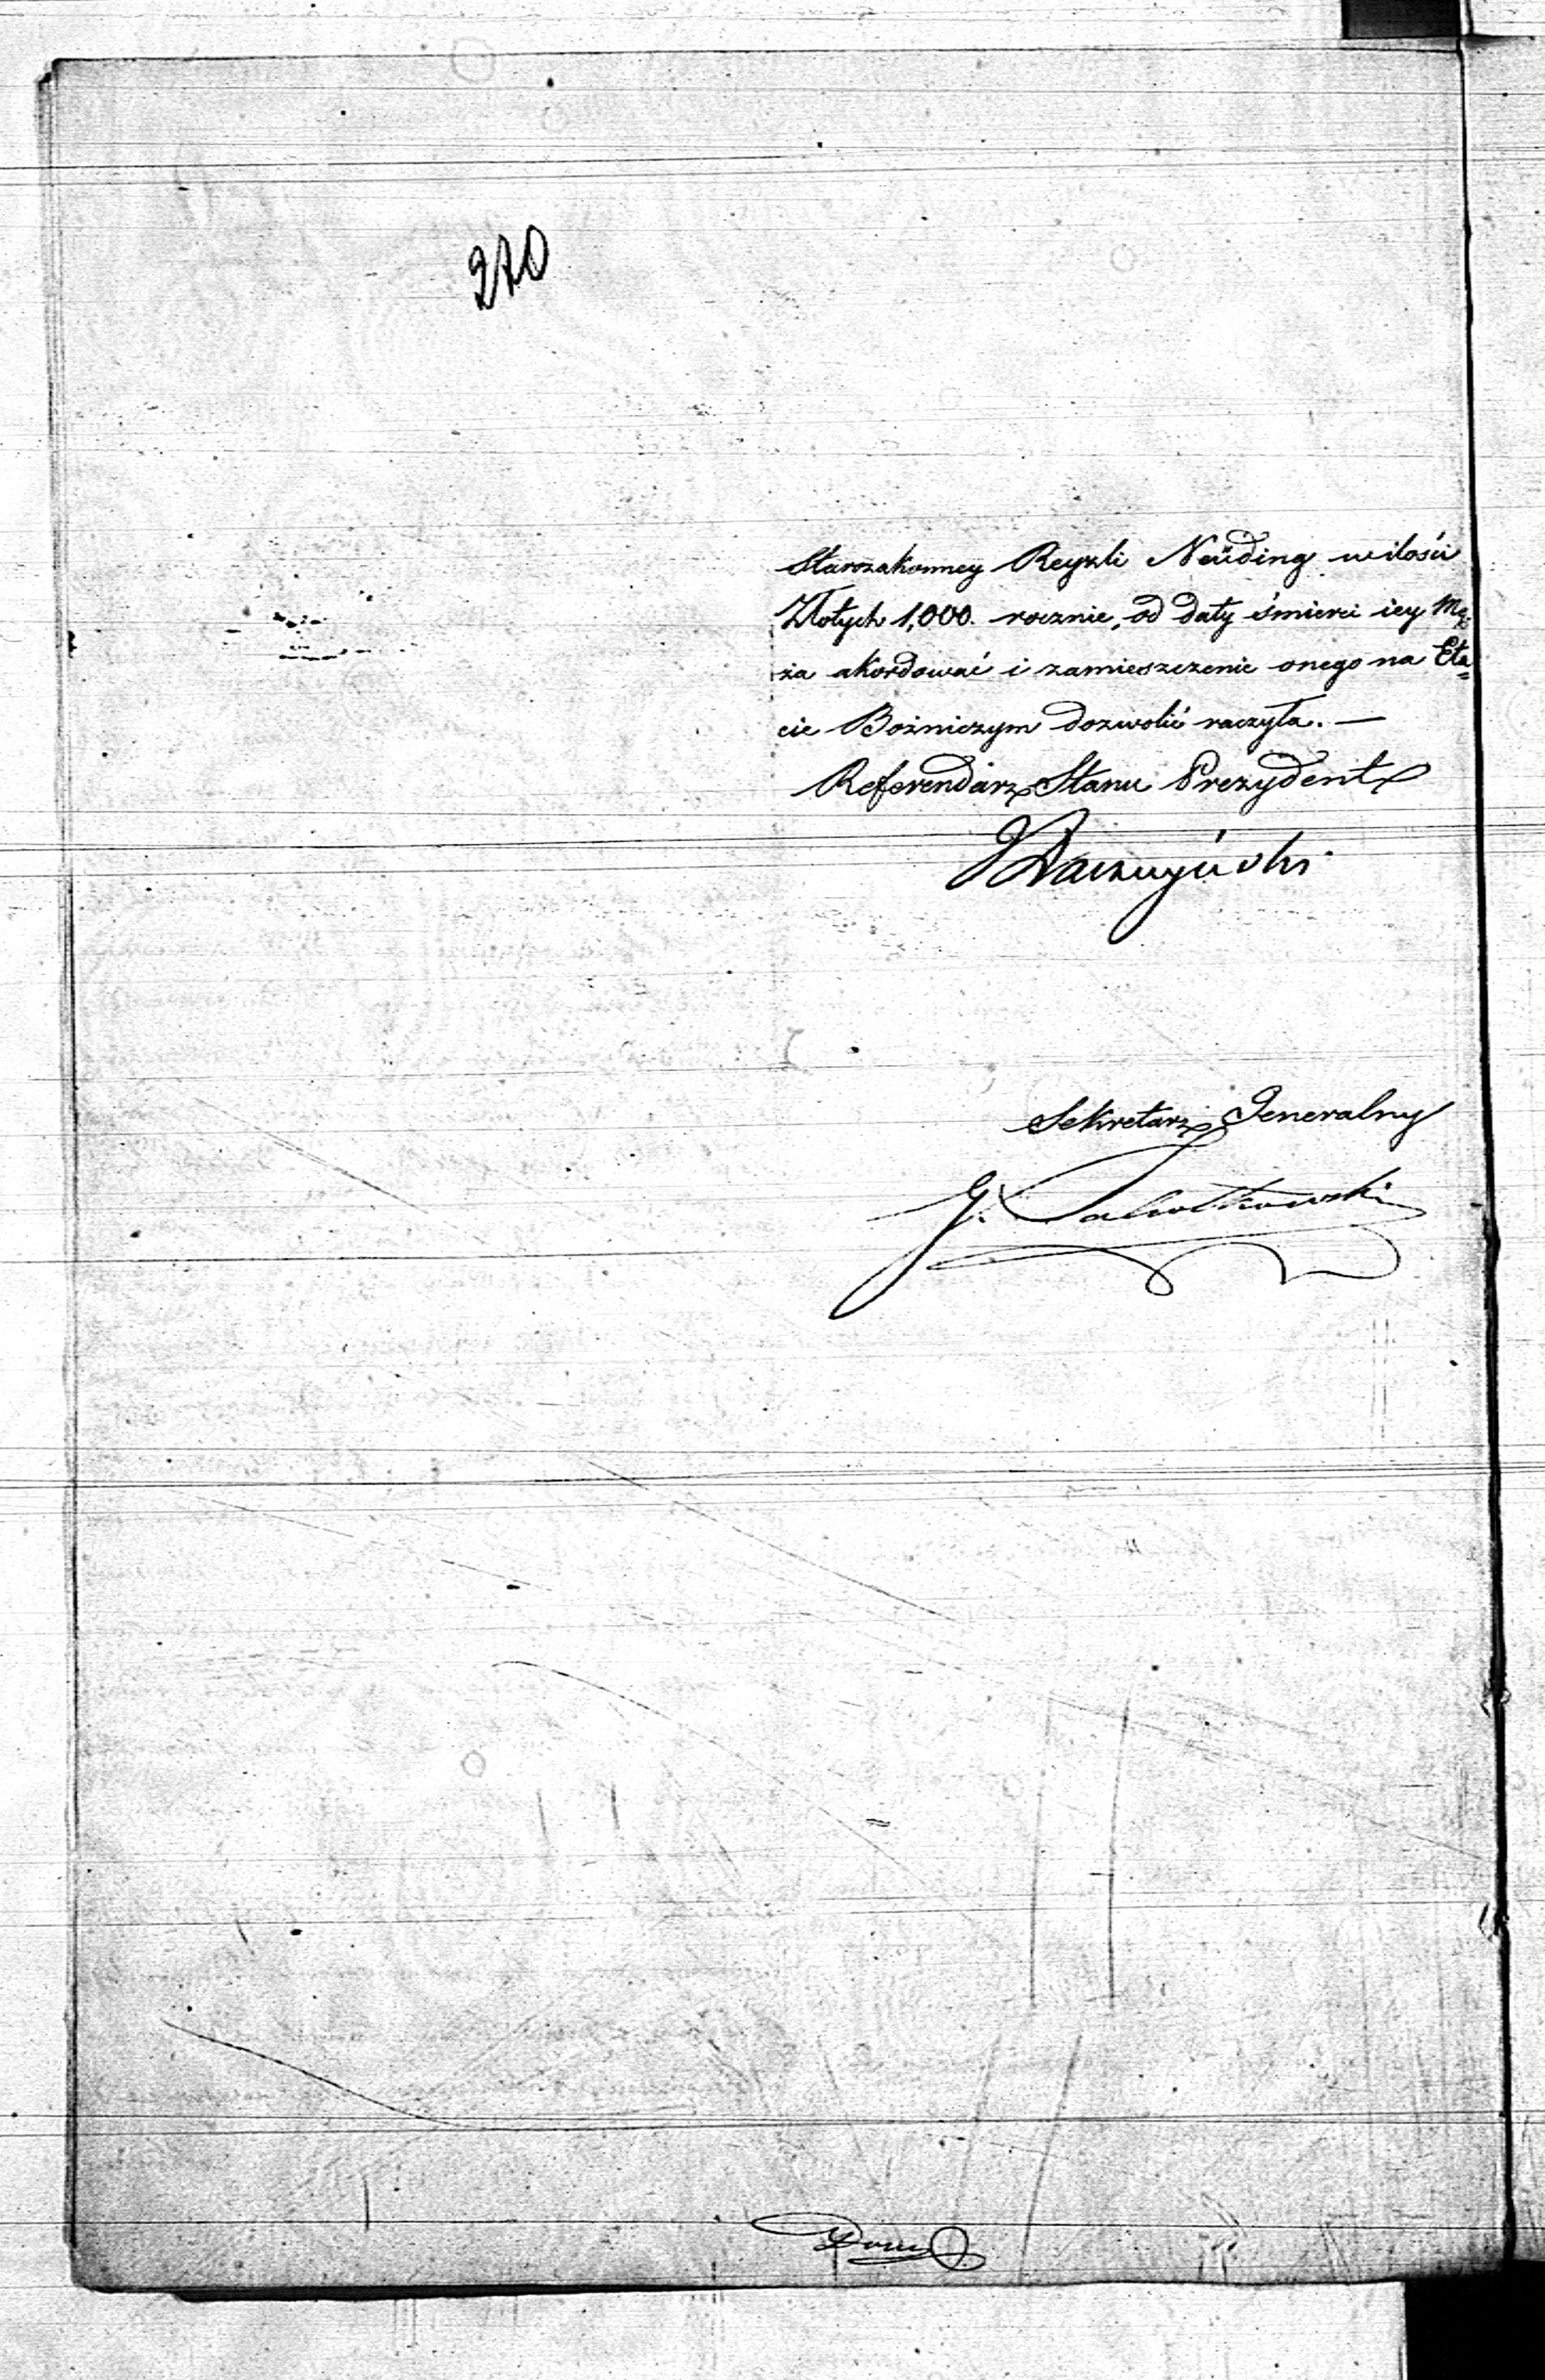 270
Starozakonney Reyzli Neüding w ilości
Złotych 1,000. rocznie, od daty śmierci iey Mę=
ża akordować i zamieszczenie onego na Eta=
cie Bożniczym dozwolić raczyła. —
Referendarz Stanu Prezydent
Sekretarz Generalny
G.